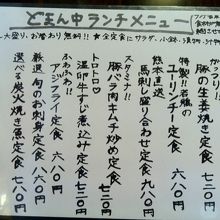 どまん中ランチメニュー
大盛り、お替わり無料!! 全定食にサラダ、小鉢、
ガッツリ!!
豚の生姜焼き定食 七八〇
特製
ユーリンチー定食 七八〇
熊本直送
馬刺し盛り合わせ定食 九八〇
スタミナ!!
豚バラ肉キムチ炒め定食 七八〇
トロトロ
温卵牛すじ煮込み定食 七八〇
ふわふわ!!
アジフライ定食 六八〇
厳選旬のお刺身定食 七八〇
選べる炭火焼き魚定食 七八〇